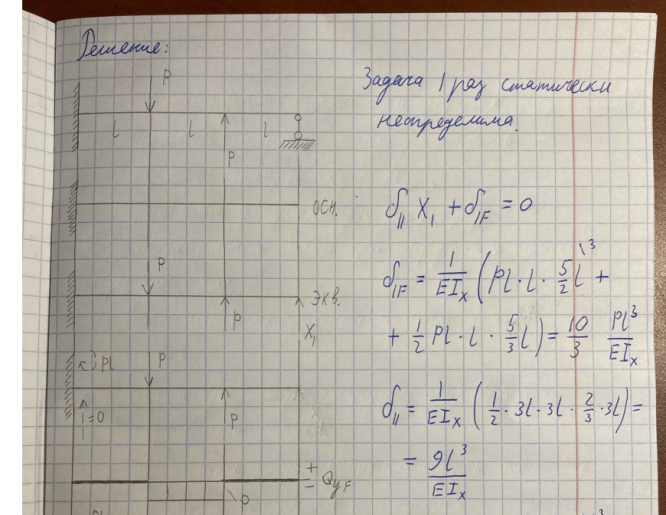 Решение:
P
l l l
P
осн.
P
экв.
P
X₁
Pl P
P
= 0
+
− Qy_F
P
Задача 1 раз статически
неопределима.
δ₁₁ X₁ + δ₁F = 0
δ₁F = 1/EIₓ (Pl · l · 5/2 l +
+ 1/2 Pl · l · 5/3 l) = 10/3 Pl³/EIₓ
δ₁₁ = 1/EIₓ (1/2 · 3l · 3l · 2/3 · 3l) =
= 9l³/EIₓ